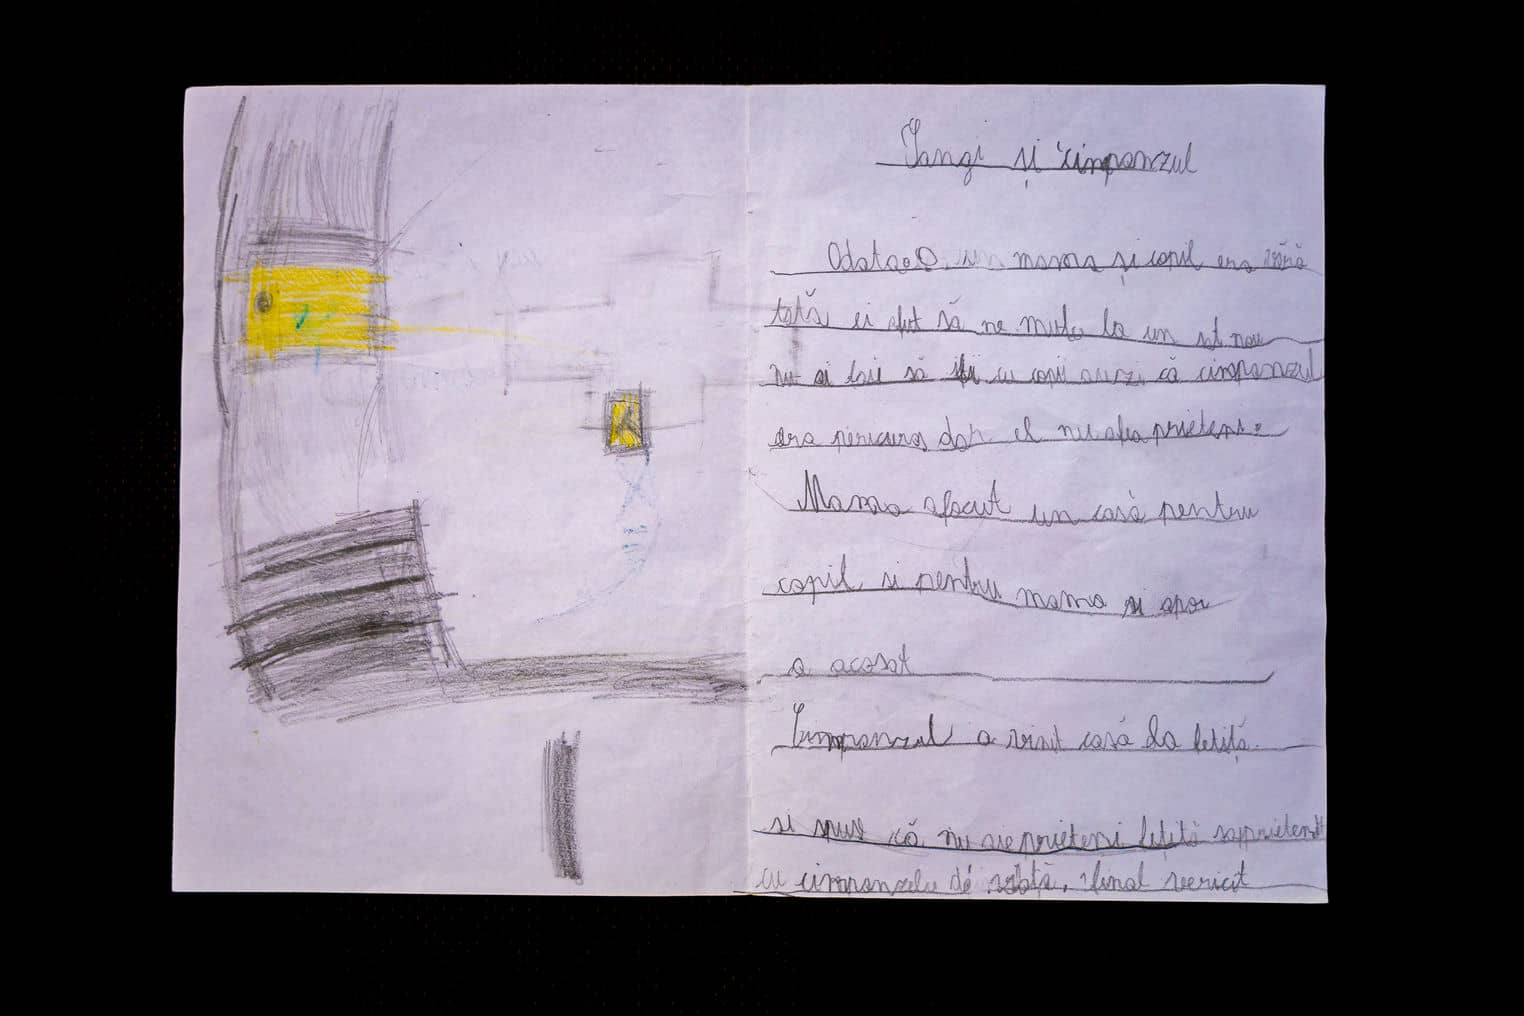 Tangi și cimpanzul
Odată o mama și copil era fără
tată ei avut să ne mute la un sat nou
nu ai fie să cu copii auzi că cimpanzul
era pericuros dar el nu afea prieteni.
Mama afacut un casă pentru
copil si pentru mama si apoi
a acasat
Cimpanzul a visit casă la fetită.
si spus că nu areprieteni fetită saprietenit
cu cimpanzelu de final vericit